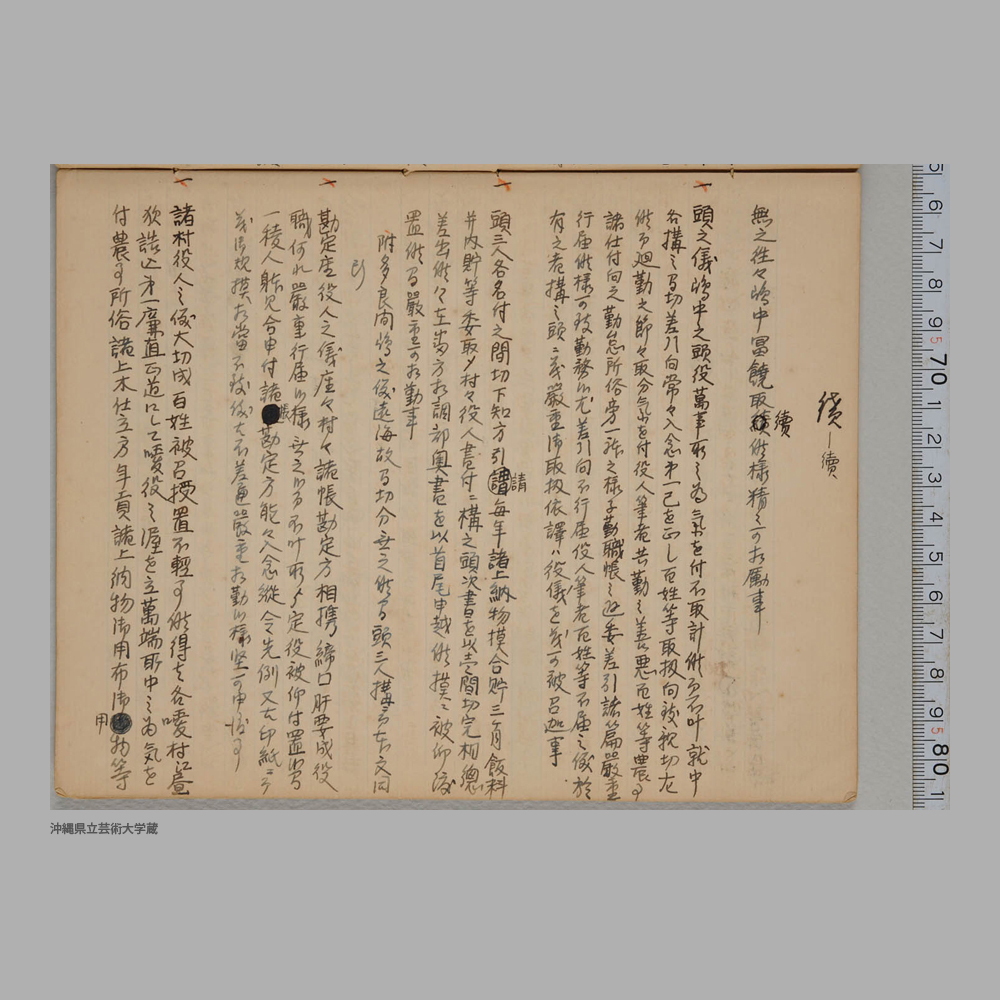 續 ― 續
無之往々嶋中冨饒取續候様精々可相勵事
續
頭之儀嶋中之頭役萬事所之為氣を付不取計候而不叶就中
各構之間切差引向常々入念第一己を正し百姓等取扱向被親切尤
候而廻勤之節々取分氣を付役人筆者共勤之善悪百姓等農事
諸仕付向之勤怠所俗旁一躰之様子勤職帳之逐委差引諸篇嚴重
行届候様可致勤務候尤差引向不行届役人筆者百姓等不届之儀於
有之者構之頭ニ茂嚴重御取扱依譯ハ役儀を茂可被召迦事
頭三人各名付之間切下知方引 每年諸上納物摸合貯三ヶ月飯料
請
并内貯等委取〆村々役人書付ニ構之頭次書を以壱間切完相總
差出候ハヽ在番方相調部奥書を以首尾申越候摸ニ被仰渡
置候間嚴重可相勤事
附多良間嶋之儀遠海故間切分無之候間頭三人構ニ而右文同
勘定座役人之儀座々村々諸帳勘定方相携締口肝要成役
職何れ嚴重行届候様無之候而不叶所より定役被仰付置候間
一稜人躰見合申付諸 勘定方能々入念縱令先例又者印紙ニ而
帳
茂御規摸相當不致儀者不差通嚴重相勤候様堅可申渡事
諸村役人之儀大切成百姓被召授置不輕事候得者各噯村江昼
夜詰込第一廉直正道にして噯役之渥を立萬端所中之為気を
付農事所俗諸上木仕立方年貢諸上納物御用布御 物等
用
沖縄県立芸術大学蔵
5 6 7 8 9 5 70 1 2 3 4 5 6 7 8 9 5 80 1